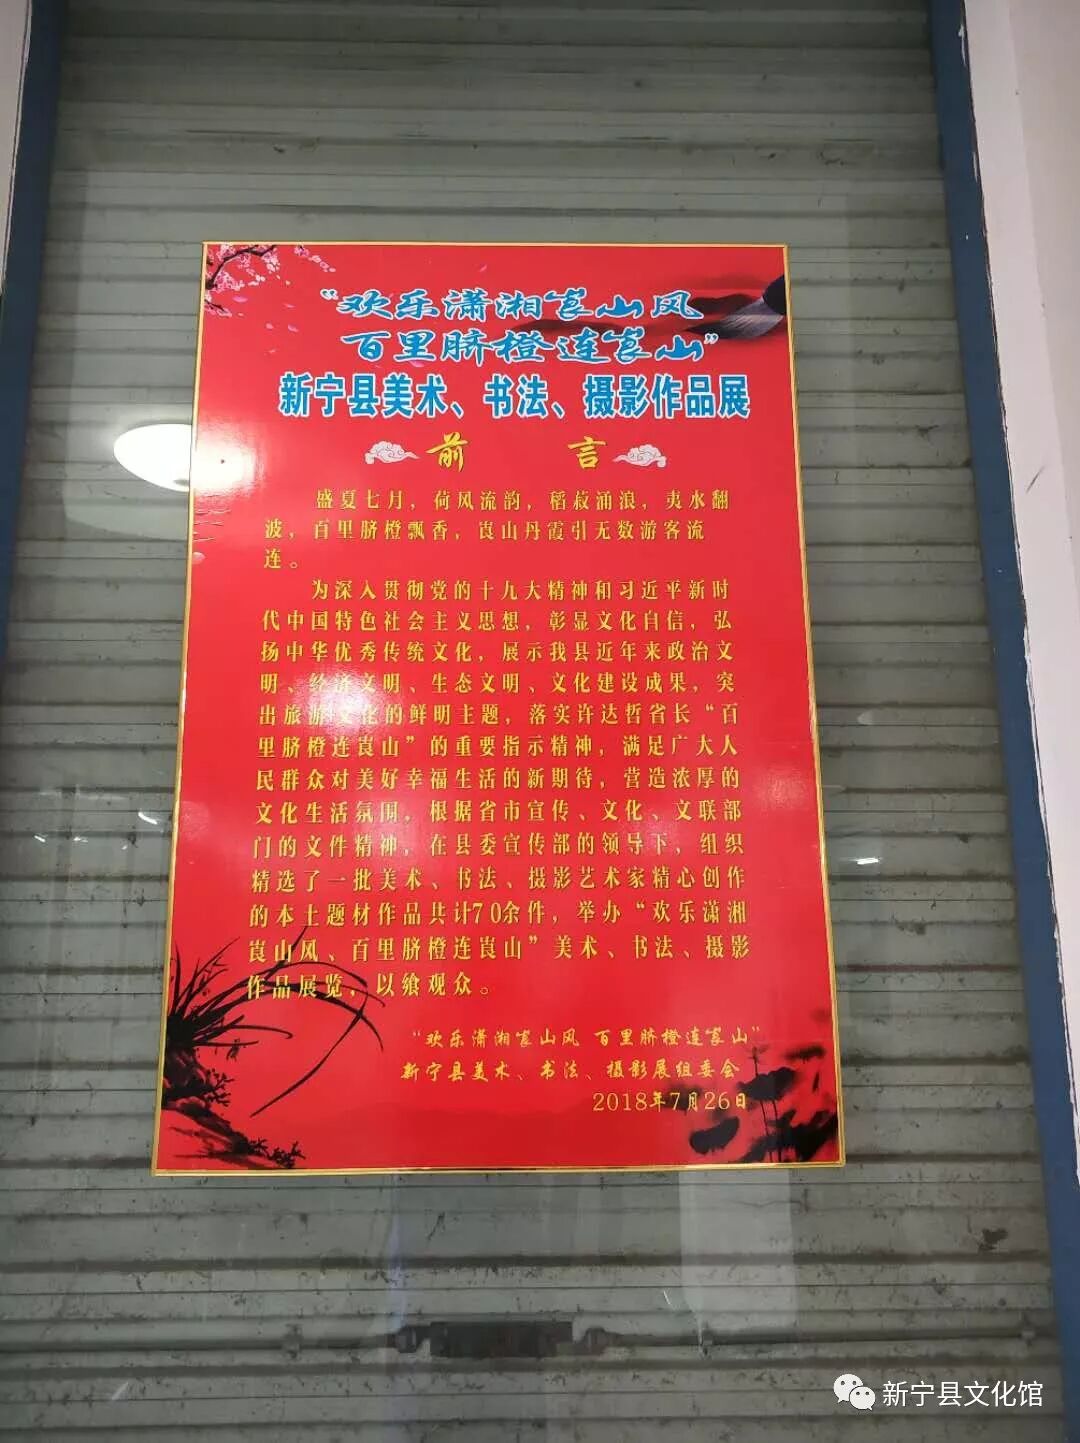 “欢乐潇湘崀山风
百里脐橙连崀山”
新宁县美术、书法、摄影作品展
前 言
盛夏七月，荷风流韵，稻菽涌浪，夷水翻
波，百里脐橙飘香，崀山丹霞引无数游客流
连。
为深入贯彻党的十九大精神和习近平新时
代中国特色社会主义思想，彰显文化自信，弘
扬中华优秀传统文化，展示我县近年来政治文
明、经济文明、生态文明、文化建设成果，突
出旅游文化的鲜明主题，落实许达哲省长“百
里脐橙连崀山”的重要指示精神，满足广大人
民群众对美好幸福生活的新期待，营造浓厚的
文化生活氛围，根据省市宣传、文化、文联部
门的文件精神，在县委宣传部的领导下，组织
精选了一批美术、书法、摄影艺术家精心创作
的本土题材作品共计70余件，举办“欢乐潇湘
崀山风、百里脐橙连崀山”美术、书法、摄影
作品展览，以飨观众。
“欢乐潇湘崀山风 百里脐橙连崀山”
新宁县美术、书法、摄影展组委会
2018年7月26日
新宁县文化馆